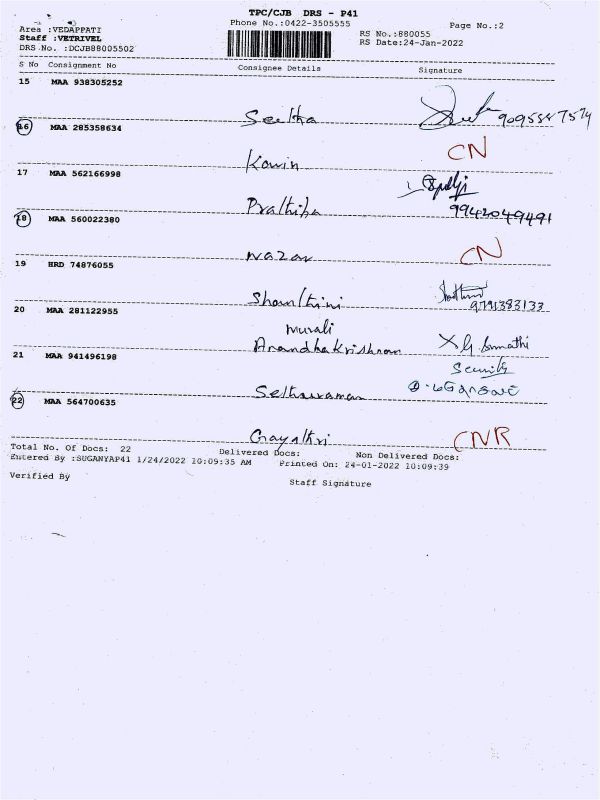 TPC/CJB DRS - P41
Phone No.:0422-3505555
Page No.:2
Area :VEDAPPATI
Staff :VETRIVEL
DRS No. :DCJB88005502
RS No.:880055
RS Date:24-Jan-2022
S No Consignment No Consignee Details Signature
15 MAA 938305252
Seetha
16 MAA 285358634
Kowin CN
17 MAA 562166998
Prathiba 9942049491
18 MAA 560022380
Nazar CN
19 HRD 74876055
Shanthini 9791383133
20 MAA 281122955
Murali
Anandhakrishnan Sumathi
21 MAA 941496198
Security
Sethuraman
22 MAA 564700635
Gayathri CNR
Total No. Of Docs: 22 Delivered Docs: Non Delivered Docs:
Entered By :SUGANYAP41 1/24/2022 10:09:35 AM Printed On: 24-01-2022 10:09:39
Verified By Staff Signature